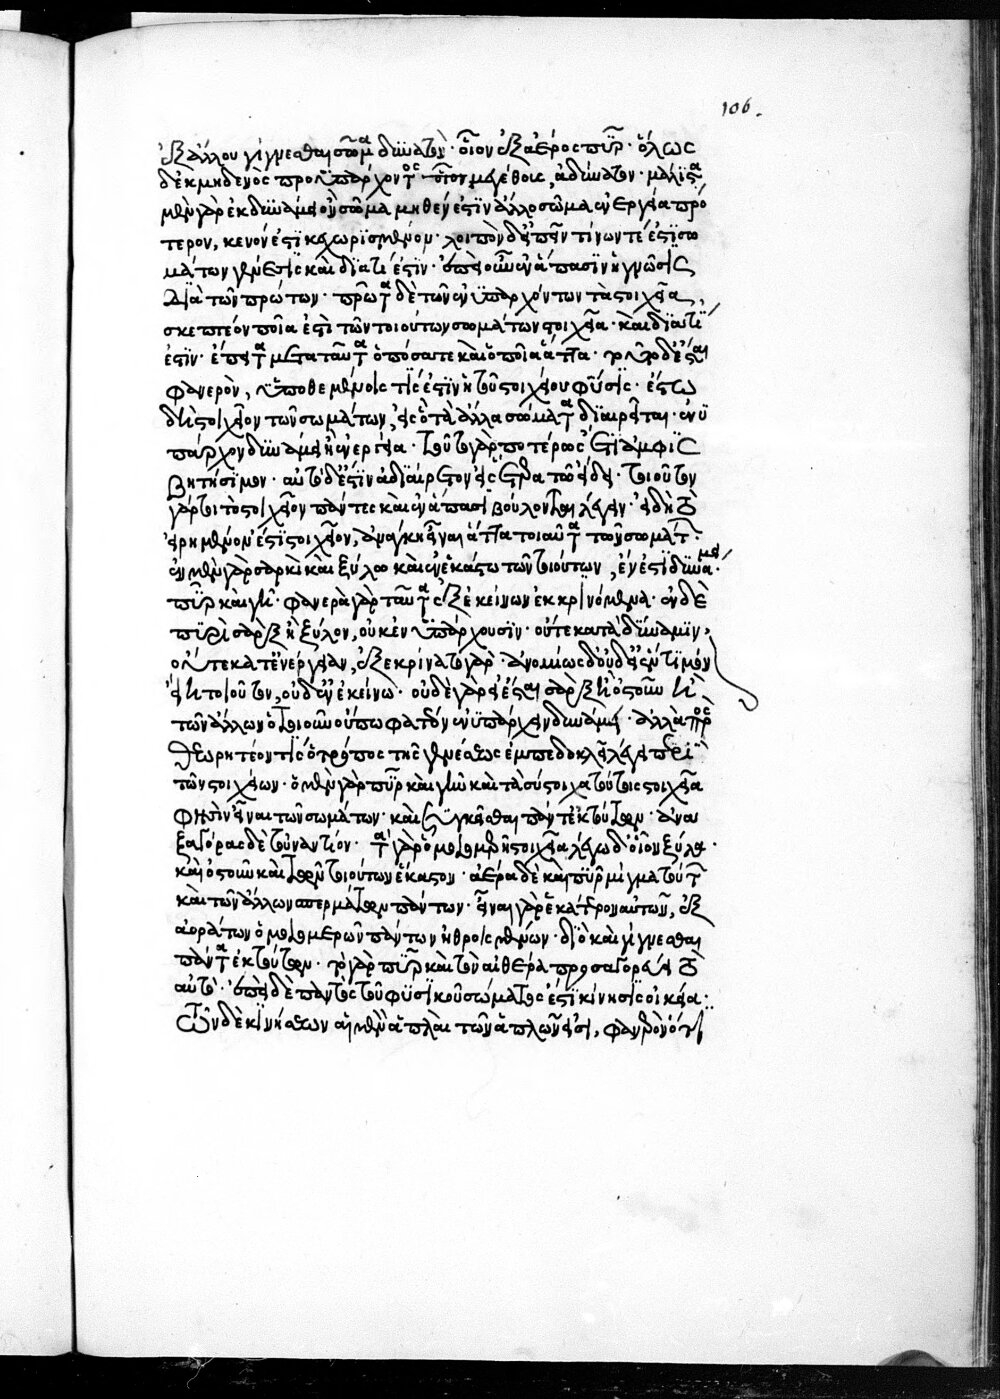 106.
ἐξ ἄλλου γίγνεσθαι σῶμα δυνατόν· οἷον ἐξ ἀέρος πῦρ· ὅλως
δ' ἐκ μηδενὸς προϋπάρχοντος μεγέθους, ἀδύνατον· μάλιστα
μὲν γὰρ ἐκ δυνάμει ὄντος σῶμα μηθέν ἐστιν ἄλλο σῶμα ἐνεργείᾳ πρό
τερον, κενόν ἐστι κεχωρισμένον· λοιπὸν δ' εἰπεῖν τίνων τέ ἐστι σω
μάτων γένεσις καὶ διατί ἐστιν· ἐπεὶ οὖν ἐν ἅπασιν ἡ γνῶσις
διὰ τῶν πρώτων· πρῶτα δὲ τῶν ἐνυπαρχόντων τὰ στοιχεῖα,
σκεπτέον ποῖα ἐστὶ τῶν τοιούτων σωμάτων στοιχεῖα· καὶ διατί
ἐστιν· ἔπειτα μετὰ ταῦτα ὁπόσα τε καὶ ὁποῖα ἄττα· τοῦτο δ' ἔσται
φανερὸν, ὑποθεμένοις τίς ἐστιν ἡ τοῦ στοιχείου φύσις· ἔστω
δὴ στοιχεῖον τῶν σωμάτων, εἰς ὃ τὰ ἄλλα σώματα διαιρεῖται· ἐνυ
πάρχον δυνάμει ἢ ἐνεργείᾳ· τοῦτο γὰρ ποτέρως ἔτι ἀμφισ
βητήσιμον· αὐτὸ δ' ἐστὶν ἀδιαίρετον εἰς ἕτερα τῷ εἴδει· τοιοῦτον
γάρ τι τὸ στοιχεῖον πάντες καὶ ἐν ἅπασι βούλονται λέγειν· εἰ δὴ τὸ
εἰρημένον ἐστὶ στοιχεῖον, ἀνάγκη εἶναι ἄττα τοιαῦτα τῶν σωμάτων·
ἐν μὲν γὰρ σαρκὶ καὶ ξύλῳ καὶ ἐν ἑκάστῳ τῶν τοιούτων, ἔνεστι δυνάμει
πῦρ καὶ γῆ· φανερὰ γὰρ ταῦτα ἐξ ἐκείνων ἐκκρινόμενα· ἐν δὲ
πυρὶ σὰρξ ἢ ξύλον, οὐκ ἐνυπάρχουσιν· οὔτε κατὰ δύναμιν,
οὔτε κατ' ἐνέργειαν, ἐξεκρίνατο γάρ· ἀνομοίως δ' οὐδ' εἰ ἕν τι μόνον
εἴη τοιοῦτον, οὐδ' ἐν ἐκείνῳ· οὐδὲ γὰρ εἰ ἔσται σὰρξ ἢ ὀστοῦν ἢ
τῶν ἄλλων ὁτιοῦν οὔπω φατέον ἐνυπάρχειν δυνάμει· ἀλλὰ προς
θεωρητέον τίς ὁ τρόπος τῆς γενέσεως ἐμπεδοκλῆς λέγει περὶ
τῶν στοιχείων· ὁ μὲν γὰρ πῦρ καὶ γῆν καὶ τὰ σύστοιχα τούτοις στοιχεῖα
φησὶν εἶναι τῶν σωμάτων· καὶ συγκεῖσθαι πάντ' ἐκ τούτων· ἀνα
ξαγόρας δὲ τοὐναντίον· τὰ γὰρ ὁμοιομερῆ στοιχεῖα λέγω δ' οἷον ξύλα·
καὶ ὀστοῦν καὶ τῶν τοιούτων ἕκαστον· ἀέρα δὲ καὶ πῦρ μίγματα τούτων
καὶ τῶν ἄλλων σπερμάτων πάντων· εἶναι γὰρ ἑκάτερον αὐτῶν, ἐξ
ἀοράτων ὁμοιομερῶν πάντων ἠθροισμένων· διὸ καὶ γίγνεσθαι
πάντα ἐκ τούτων· τὸ γὰρ πῦρ καὶ τὸν αἰθέρα προσαγορεύει τὸ
αὐτό· ἐπεὶ δὲ παντὸς τοῦ φυσικοῦ σώματος ἐστὶ κίνησις οἰκεία·
τῶν δὲ κινήσεων αἱ μὲν ἁπλαῖ τῶν ἁπλῶν εἰσι, φανερὸν ὅτι